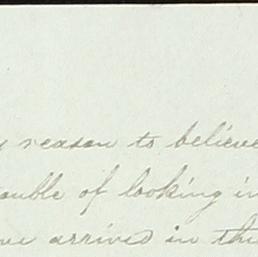 reason to believe
of looking in
arrived in